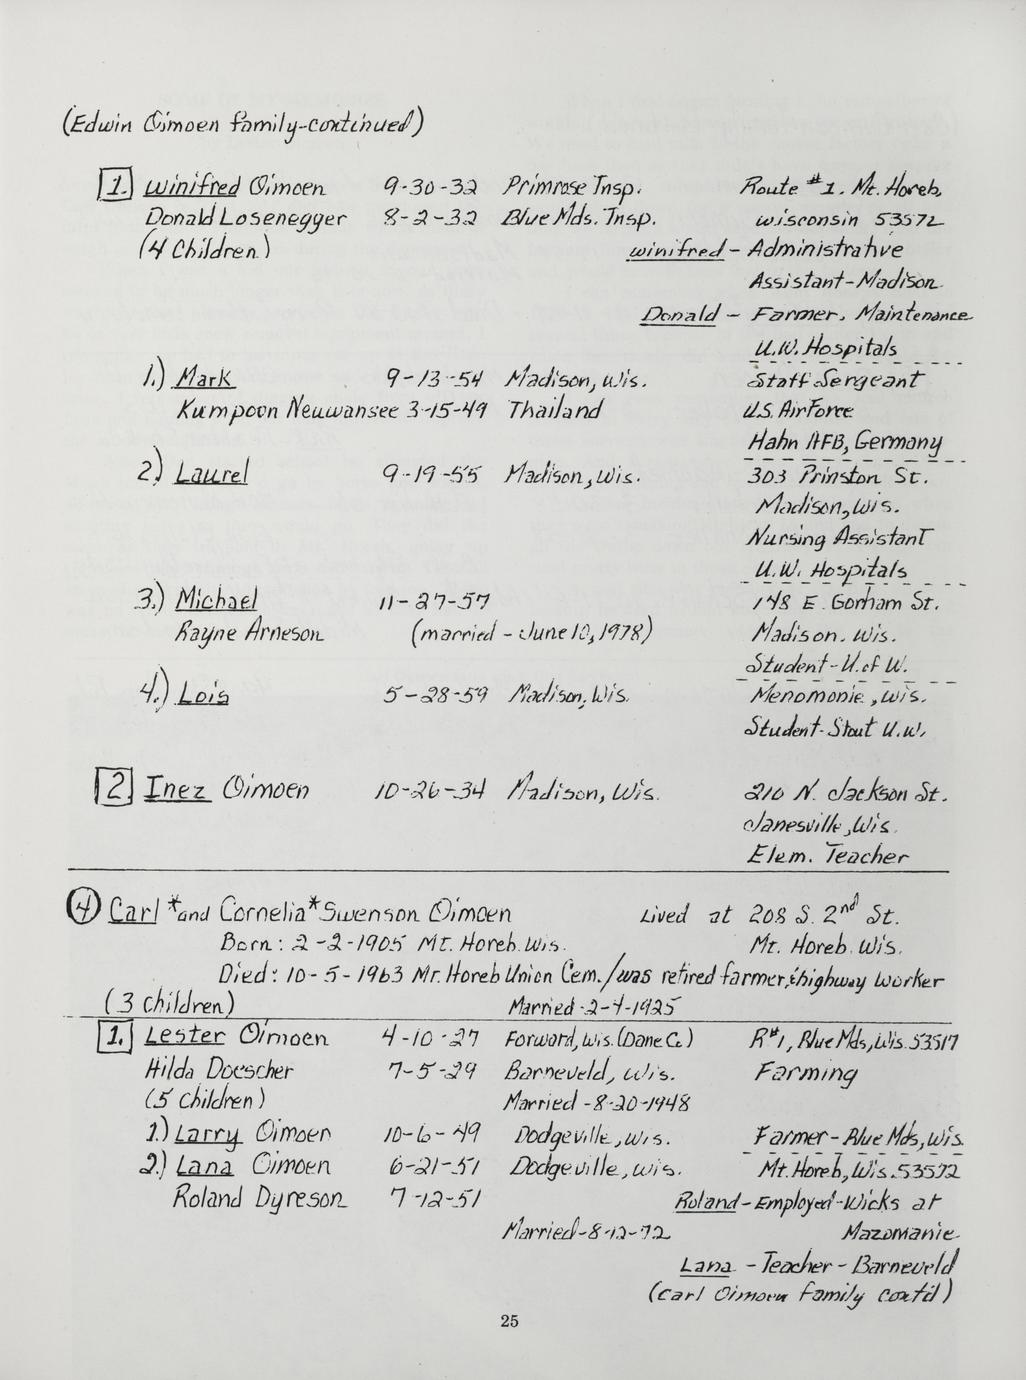 (Edwin Oimoen family-continued)
1. Winifred Oimoen 9-30-32 Primrose Tnsp. Route #1. Mt. Horeb,
Donald Losenegger 8-2-32 Blue Mds. Tnsp. Wisconsin 53572
(4 Children) Winifred - Administrative
Assistant-Madison
Donald - Farmer, Maintenance
U.W. Hospitals
1.) Mark 9-13-54 Madison, Wis. Staff Sergeant
Kumpoon Neuwansee 3-15-49 Thailand U.S. AirForce
Hahn AFB, Germany
2.) Laurel 9-19-55 Madison, Wis. 303 Prinston St.
Madison, Wis.
Nursing Assistant
U.W. Hospitals
3.) Michael 11-27-57 148 E. Gorham St.
Rayne Arneson (married - June 10, 1978) Madison. Wis.
Student-U. of W.
4.) Lois 5-28-59 Madison, Wis. Menomonie, Wis.
Student-Stout U.W.
2 Inez Oimoen 10-26-34 Madison, Wis. 210 N. Jackson St.
Janesville, Wis.
Elem. Teacher
4 Carl * and Cornelia * Swenson Oimoen Lived at 208 S. 2nd St.
Born: 2-2-1905 Mt. Horeb. Wis. Mt. Horeb. Wis.
Died: 10-5-1963 Mt. Horeb Union Cem./was retired farmer, & highway worker
(3 children) Married-2-4-1925
1. Lester Oimoen 4-10-27 Forward, Wis. (Dane Co.) R#1, Blue Mds, Wis. 53517
Hilda Doescher 7-5-29 Barneveld, Wis. Farming
(5 Children) Married-8-20-1948
1.) Larry Oimoen 10-6-49 Dodgeville, Wis. Farmer-Blue Mds, Wis.
2.) Lana Oimoen 6-21-51 Dodgeville, Wis. Mt. Horeb, Wis. 53572
Roland Dyreson 7-12-51 Roland-Employed-Wicks at
Married-8-12-72 Mazomanie
Lana - Teacher - Barneveld
(Carl Oimoen family cont'd)
25